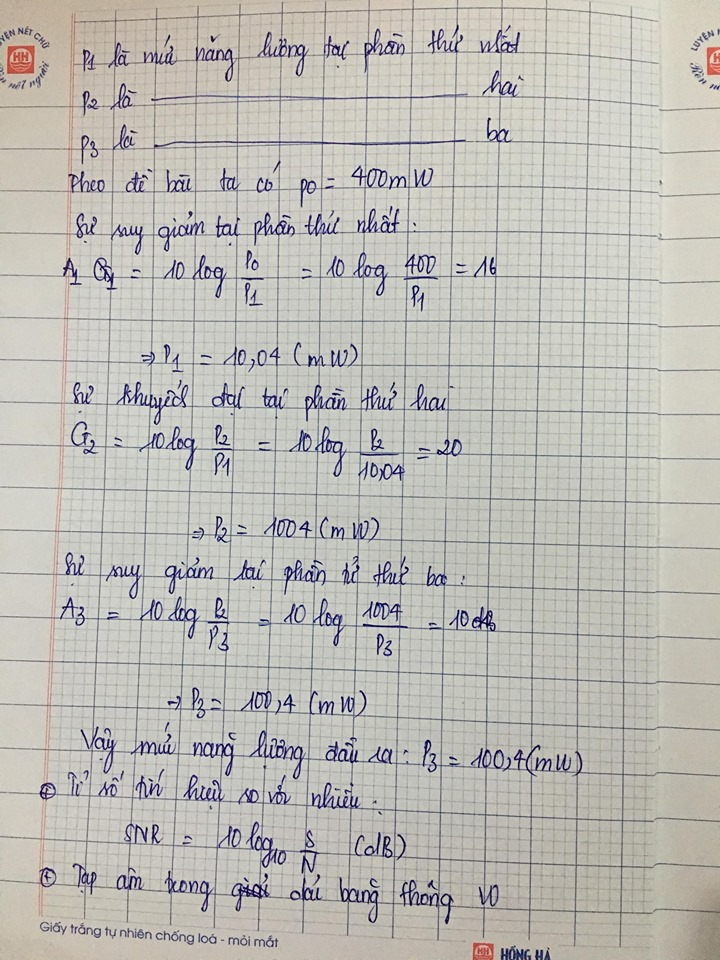 LUYỆN NÉT CHỮ
HH
Rèn nết người
LUYỆN N
HH
Rèn n
P1 là mức năng lượng tại phần thứ nhất
P2 là ——— hai
P3 là ——— ba
Theo đề bài ta có po = 400mW
Sự suy giảm tại phần thứ nhất :
A1 = 10 log P0/P1 = 10 log 400/P1 = 16
⇒ P1 = 10,04 (mW)
Sự khuyếch đại tại phần thứ hai
G2 = 10 log P2/P1 = 10 log P2/10,04 = 20
⇒ P2 = 1004 (mW)
Sự suy giảm tại phần tử thứ ba :
A3 = 10 log P2/P3 = 10 log 1004/P3 = 10 dB
→ P3 = 100,4 (mW)
Vậy mức năng lượng đầu ra : P3 = 100,4 (mW)
+ Tỉ số tín hiệu so với nhiễu :
SNR = 10 log10 S/N (dB)
+ Tạp âm trong dải băng thông W
Giấy trắng tự nhiên chống loá - mỏi mắt
HH HỒNG HÀ